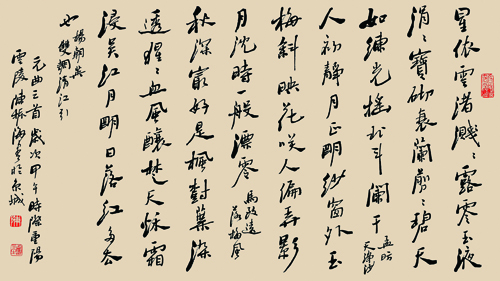 星依雲渚濺濺露零玉液
涓涓寶砌衰蘭剪剪碧天
如練光搖北斗闌干
孟昉
天淨沙
人初靜月正明紗窗外玉
梅斜映花咲人偏弄影
月沉時一般漂零
馬致遠
落梅風
秋深最好是楓樹葉染
透猩猩血風釀楚天秋霜
浸吳江月明日落紅多去
也
楊朝英
雙調清江引
元曲三首歲次甲午時際重陽
於京城